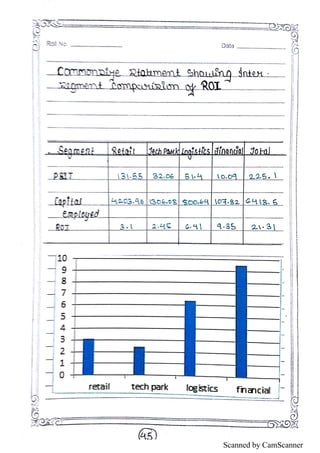 Roll No.
Date
Commonsiye Statment Showing Inter-
Segment Comparision of ROI
Segment Retail Tech Park Logistics financial Total
PBIT 131.55 32.06 51.4 10.09 225.1
Capital 4203.96 1306.08 800.64 107.82 6418.5
Employed
ROI 3.1 2.45 6.41 9.35 21.31
10
9
8
7
6
5
4
3
2
1
0
retail tech park logistics financial
45
Scanned by CamScanner